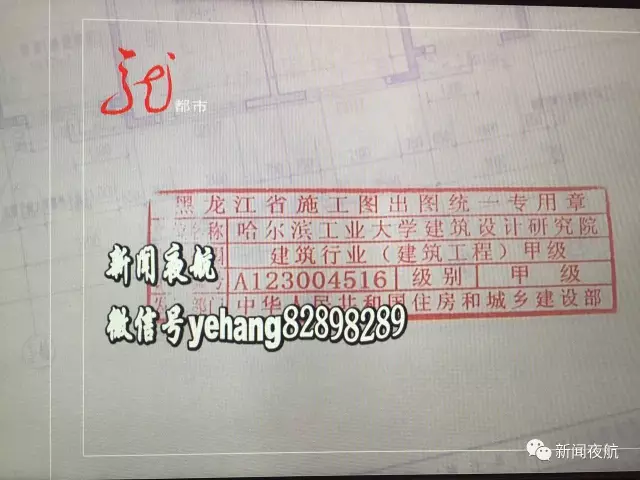 龙
都市
黑龙江省施工图出图统一专用章
称 哈尔滨工业大学建筑设计研究院
建筑行业（建筑工程）甲级
A123004516 级别 甲 级
部门 中华人民共和国住房和城乡建设部
新闻夜航
微信号yehang82898289
新闻夜航